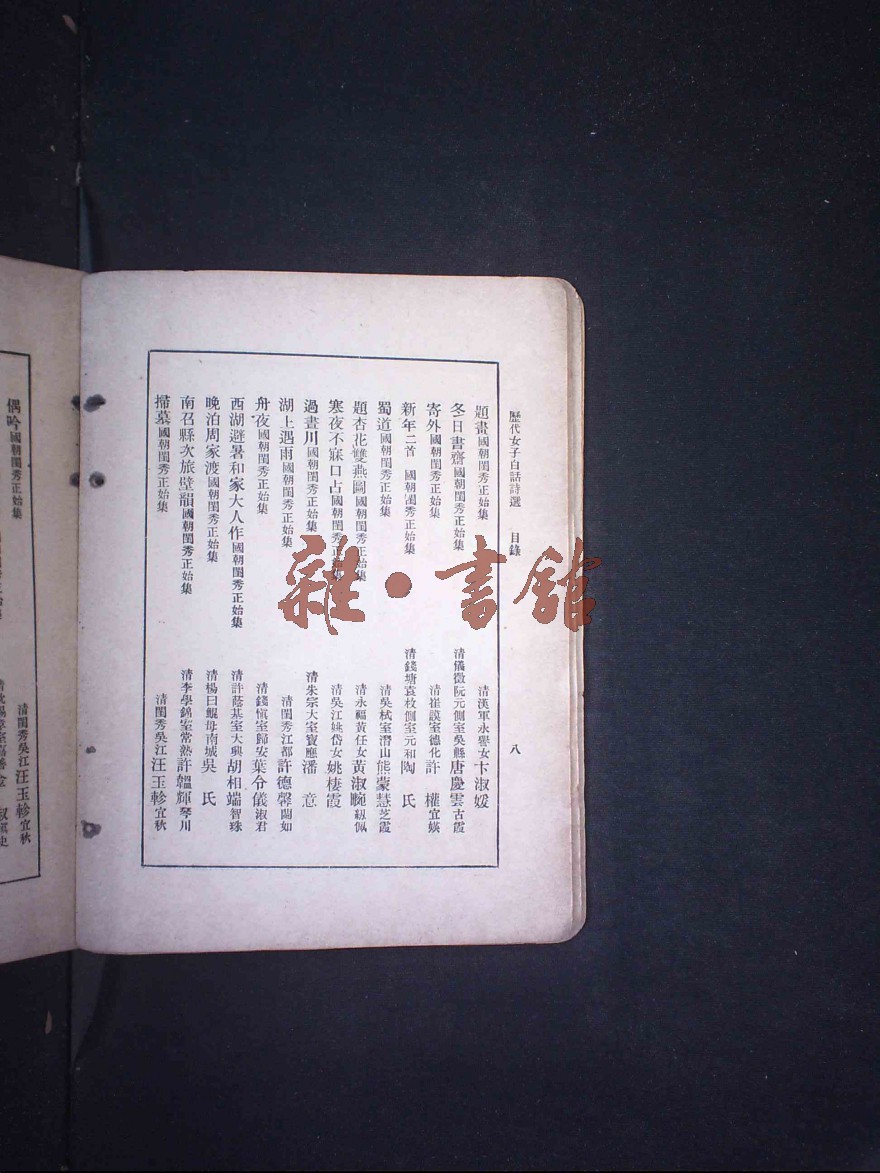 歷代女子白話詩選 目錄 八
題畫國朝閨秀正始集 清漢軍永譽女卞淑媛
冬日書齋國朝閨秀正始集 清儀徵阮元側室吳縣唐慶雲古霞
寄外國朝閨秀正始集 清崔謨室德化許權宜媖
新年二首 國朝閨秀正始集 清錢塘袁枚側室元和陶氏
蜀道國朝閨秀正始集 清吳栻室潛山熊蒙慧芝霞
題杏花雙燕圖國朝閨秀正始集 清永福黃任女黃淑畹紉佩
寒夜不寐口占國朝閨秀正始集 清吳江姚岱女姚棲霞
過畫川國朝閨秀正始集 清朱宗大室寶應潘意
湖上遇雨國朝閨秀正始集 清閨秀江都許德馨閫如
舟夜國朝閨秀正始集 清錢愼室歸安葉令儀淑君
西湖避暑和家大人作國朝閨秀正始集 清許蔭基室大興胡相端智珠
晚泊周家渡國朝閨秀正始集 清楊曰鯤母南城吳氏
南召縣次旅壁韻國朝閨秀正始集 清李學錦室常熟許韞輝琴川
掃墓國朝閨秀正始集 清閨秀吳江汪玉軫宜秋
偶吟國朝閨秀正始集 清閨秀吳江汪玉軫宜秋
雜·書館